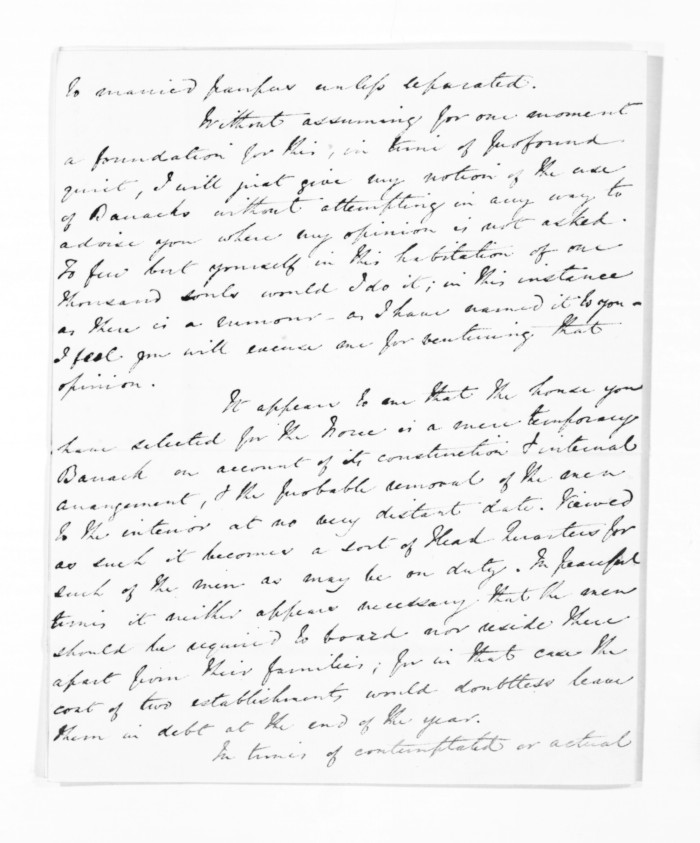 to married paupers unless separated.
Without assuming for one moment
a foundation for this, in time of profound
quiet, I will just give my notion of the use
of Barracks without attempting in any way to
advise you where my opinion is not asked.
To few but yourself in this habitation of one
thousand souls would I do it; in this instance
as there is a rumour – as I have named it to you –
I feel you will excuse me for venturing that
opinion.
It appears to me that the house you
have selected for the Force is a mere temporary
Barrack on account of its construction & internal
arrangement, & the probable removal of the men
to the interior at no very distant date. Viewed
as such it becomes a sort of Head Quarters for
such of the men as may be on duty. In peaceful
times it neither appears necessary that the men
should be required to board nor reside there
apart from their families; for in that case the
cost of two establishments would doubtless leave
them in debt at the end of the year.
In times of contemplated or actual